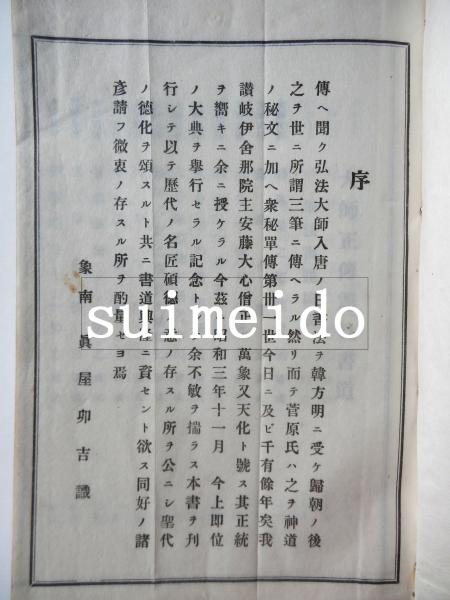 序
傳ヘ聞ク弘法大師入唐ノ日書法ヲ韓方明ニ受ケ歸朝ノ後
之ヲ世ニ所謂三筆ニ傳ヘラル然リ而テ菅原氏ハ之ヲ神道
ノ秘文ニ加ヘ衆秘單傳第卅一世今日ニ及ビ千有餘年矣我
讃岐伊舍那院主安藤大心僧正 萬象又天化ト號ス其正統
ヲ嚮キニ余ニ授ケラル今茲 昭和三年十一月 今上即位
ノ大典ヲ擧行セラル記念ト 余不敏ヲ揣ラス本書ヲ刊
行シテ以テ歷代ノ名匠碩德 意ノ存スル所ヲ公ニシ聖代
ノ德化ヲ頌スルト共ニ書道興隆ニ資セント欲ス同好ノ諸
彦請フ微衷ノ存スル所ヲ酌量セヨ焉
象南 眞屋卯吉識
suimeido